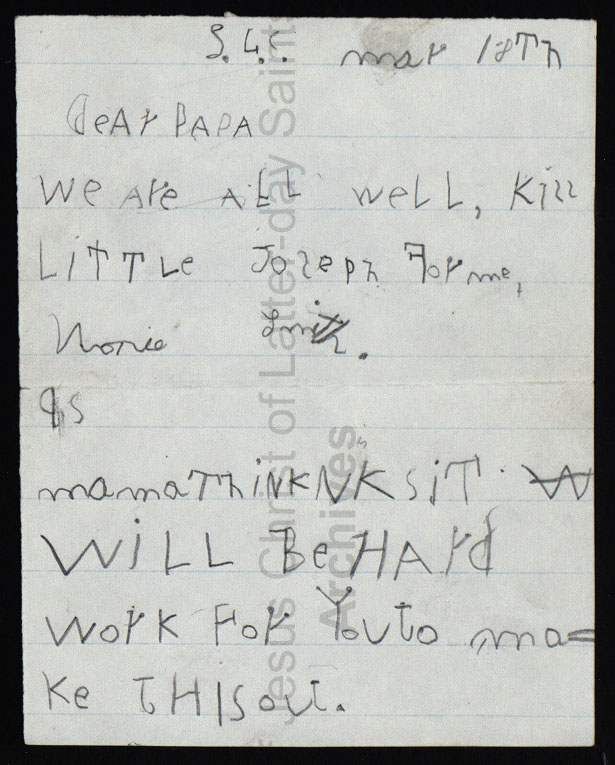 S.L.C. mar 18Th
DeAr PAPA
We Are ALL weLL, Kiss
LiTTLe Joseph For me,
Nonie Smith.
PS
mamaThiNKNKSiT W
WiLL BeHArd
WorK For YouTo ma=
Ke THISouT.
Jesus Christ of Latter-day Saint
Archives